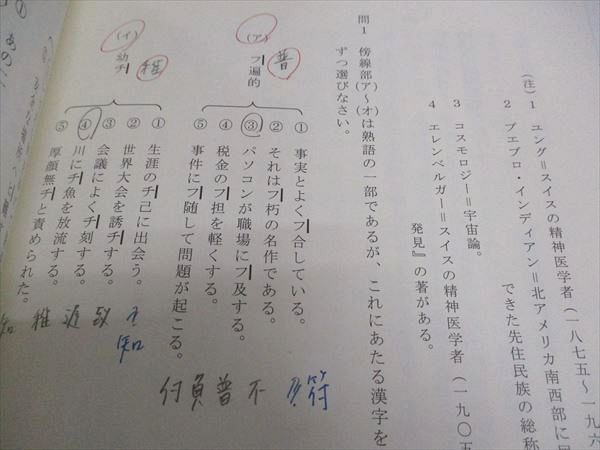 (注) 1 ユング＝スイスの精神医学者(一八七五～一九六
2 プエブロ・インディアン＝北アメリカ南西部に
できた先住民族の総称
3 コスモロジー＝宇宙論。
4 エレンベルガー＝スイスの精神医学者(一九〇五
発見』の著がある。
問1 傍線部(ア)～(オ)は熟語の一部であるが、これにあたる漢字を
ずつ選びなさい。
(ア) フ遍的
普
① 事実とよくフ合している。
② それはフ朽の名作である。
③ パソコンが職場にフ及する。
④ 税金のフ担を軽くする。
⑤ 事件にフ随して問題が起こる。
符
不
普
負
付
(イ) 幼チ
稚
① 生涯のチ己に出会う。
② 世界大会を誘チする。
③ 会議によくチ刻する。
④ 川にチ魚を放流する。
⑤ 厚顔無チと責められた。
知
致
遅
稚
①